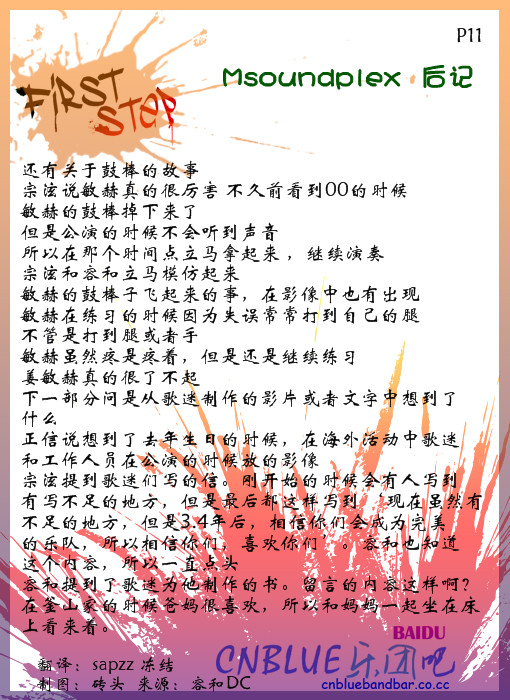 P11
FiRST
STEP
Msoundplex 后记
还有关于鼓棒的故事
宗泫说敏赫真的很厉害 不久前看到00的时候
敏赫的鼓棒掉下来了
但是公演的时候不会听到声音
所以在那个时间点立马拿起来，继续演奏
宗泫和容和立马模仿起来
敏赫的鼓棒子飞起来的事，在影像中也有出现
敏赫在练习的时候因为失误常常打到自己的腿
不管是打到腿或者手
敏赫虽然疼是疼着，但是还是继续练习
姜敏赫真的很了不起
下一部分问是从歌迷制作的影片或者文字中想到了
什么
正信说想到了去年生日的时候，在海外活动中歌迷
和工作人员在公演的时候放的影像
宗泫提到歌迷们写的信。刚开始的时候会有人写到
有写不足的地方，但是最后都这样写到‘现在虽然有
不足的地方，但是3.4年后，相信你们会成为完美
的乐队，所以相信你们，喜欢你们’。容和也知道
这个内容，所以一直点头
容和提到了歌迷为他制作的书。留言的内容这样啊？
在釜山家的时候爸妈很喜欢，所以和妈妈一起坐在床
上看来着。
BAIDU
翻译：sapzz 冻结
CNBLUE乐团吧
制图：砖头 来源：容和DC
cnbluebandbar.co.cc